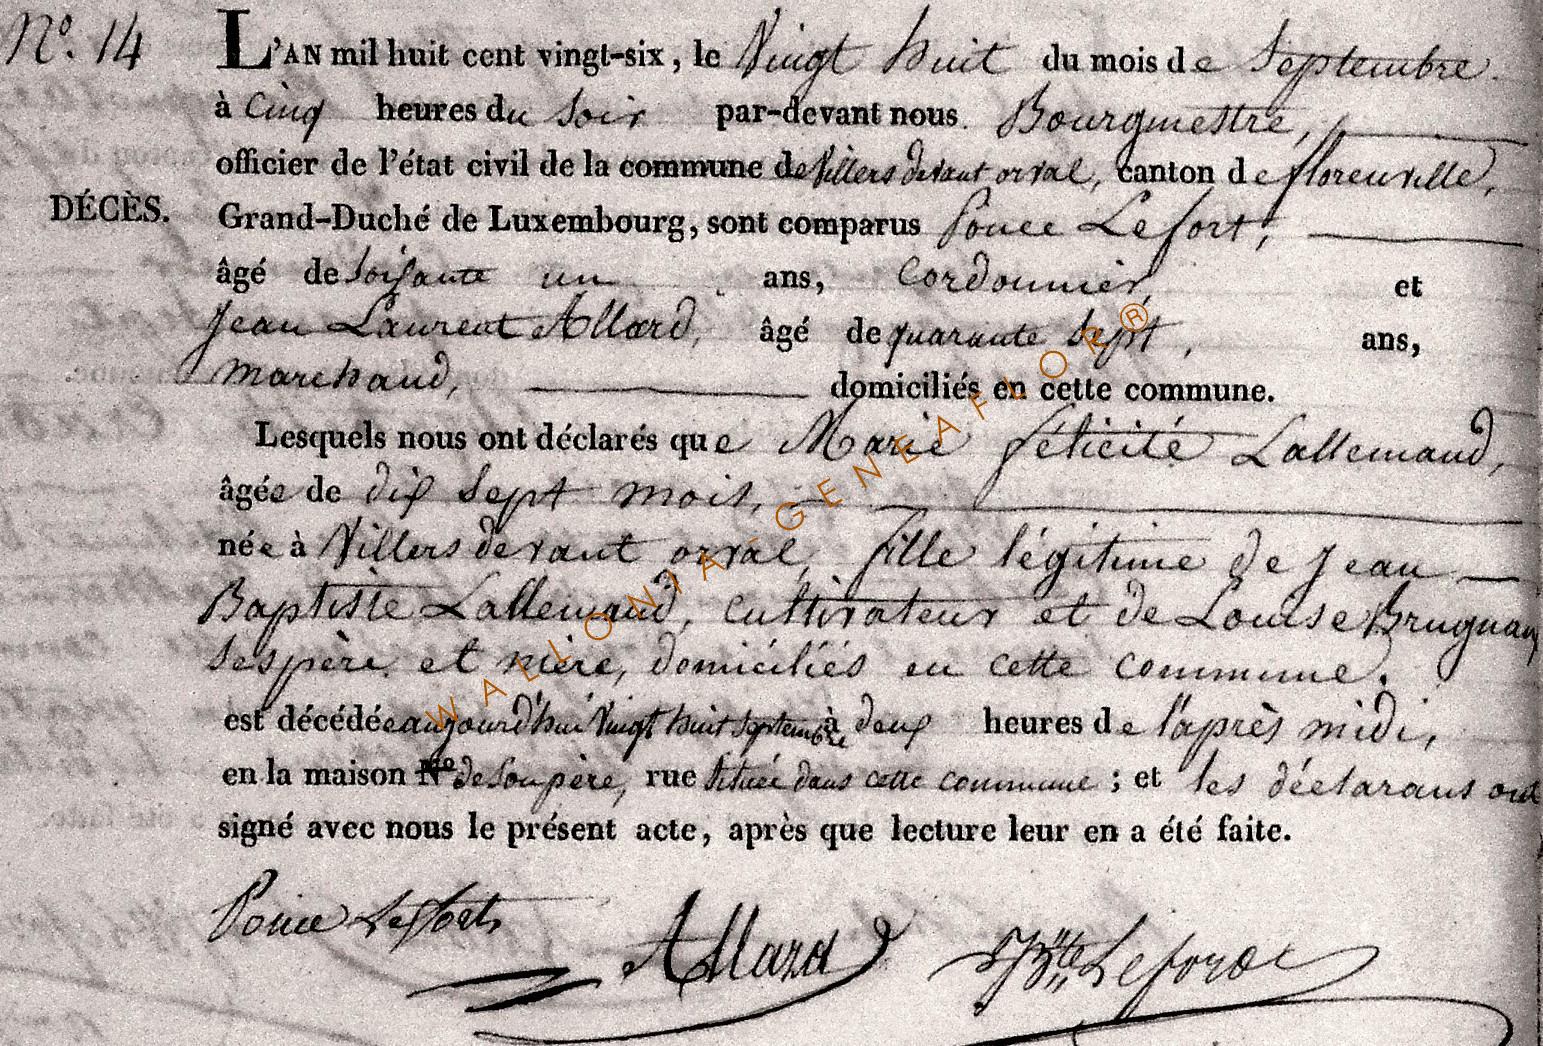 N.º 14
L'AN mil huit cent vingt-six, le Vingt huit du mois de Septembre.
à Cinq heures du Soir par-devant nous Bourgmestre,
officier de l'état civil de la commune de Villers devant orval, canton de florenville,
DÉCÈS.
Grand-Duché de Luxembourg, sont comparus Ponce Lefort,
âgé de Soixante un ans, Cordonnier, et
Jean Laurent Allard, âgé de quarante Sept, ans,
marchand, domiciliés en cette commune.
Lesquels nous ont déclarés que Marie félicité Lallemand,
âgée de dix Sept mois,
née à Villers devant orval, fille légitime de Jean
Baptiste Lallemand, cultivateur et de Louise
Ses père et mère, domiciliés en cette commune.
est décédée aujourd'hui Vingt huit Septembre à deux heures de l'après midi,
en la maison de Son père, rue Située dans cette commune ; et les déclarans ont
signé avec nous le présent acte, après que lecture leur en a été faite.
Ponce Lefort
Allard
WALLONIA GENEAFLOR ®